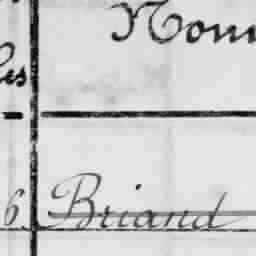 Nom
les
6 Briand